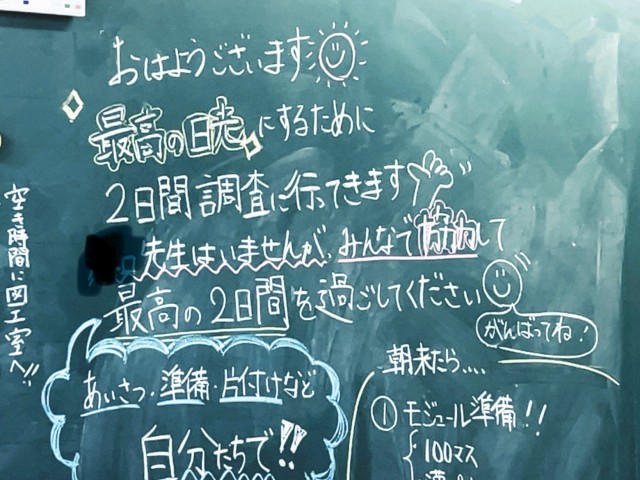 おはようございます
最高の日光にするために
2日間調査に行ってきます
先生はいませんが、みんなで協力して
最高の2日間を過ごしてください
がんばってね!
空き時間に図工室へ!!
あいさつ・準備・片付けなど
自分たちで!!
朝来たら....
① モジュール準備!!
100マス